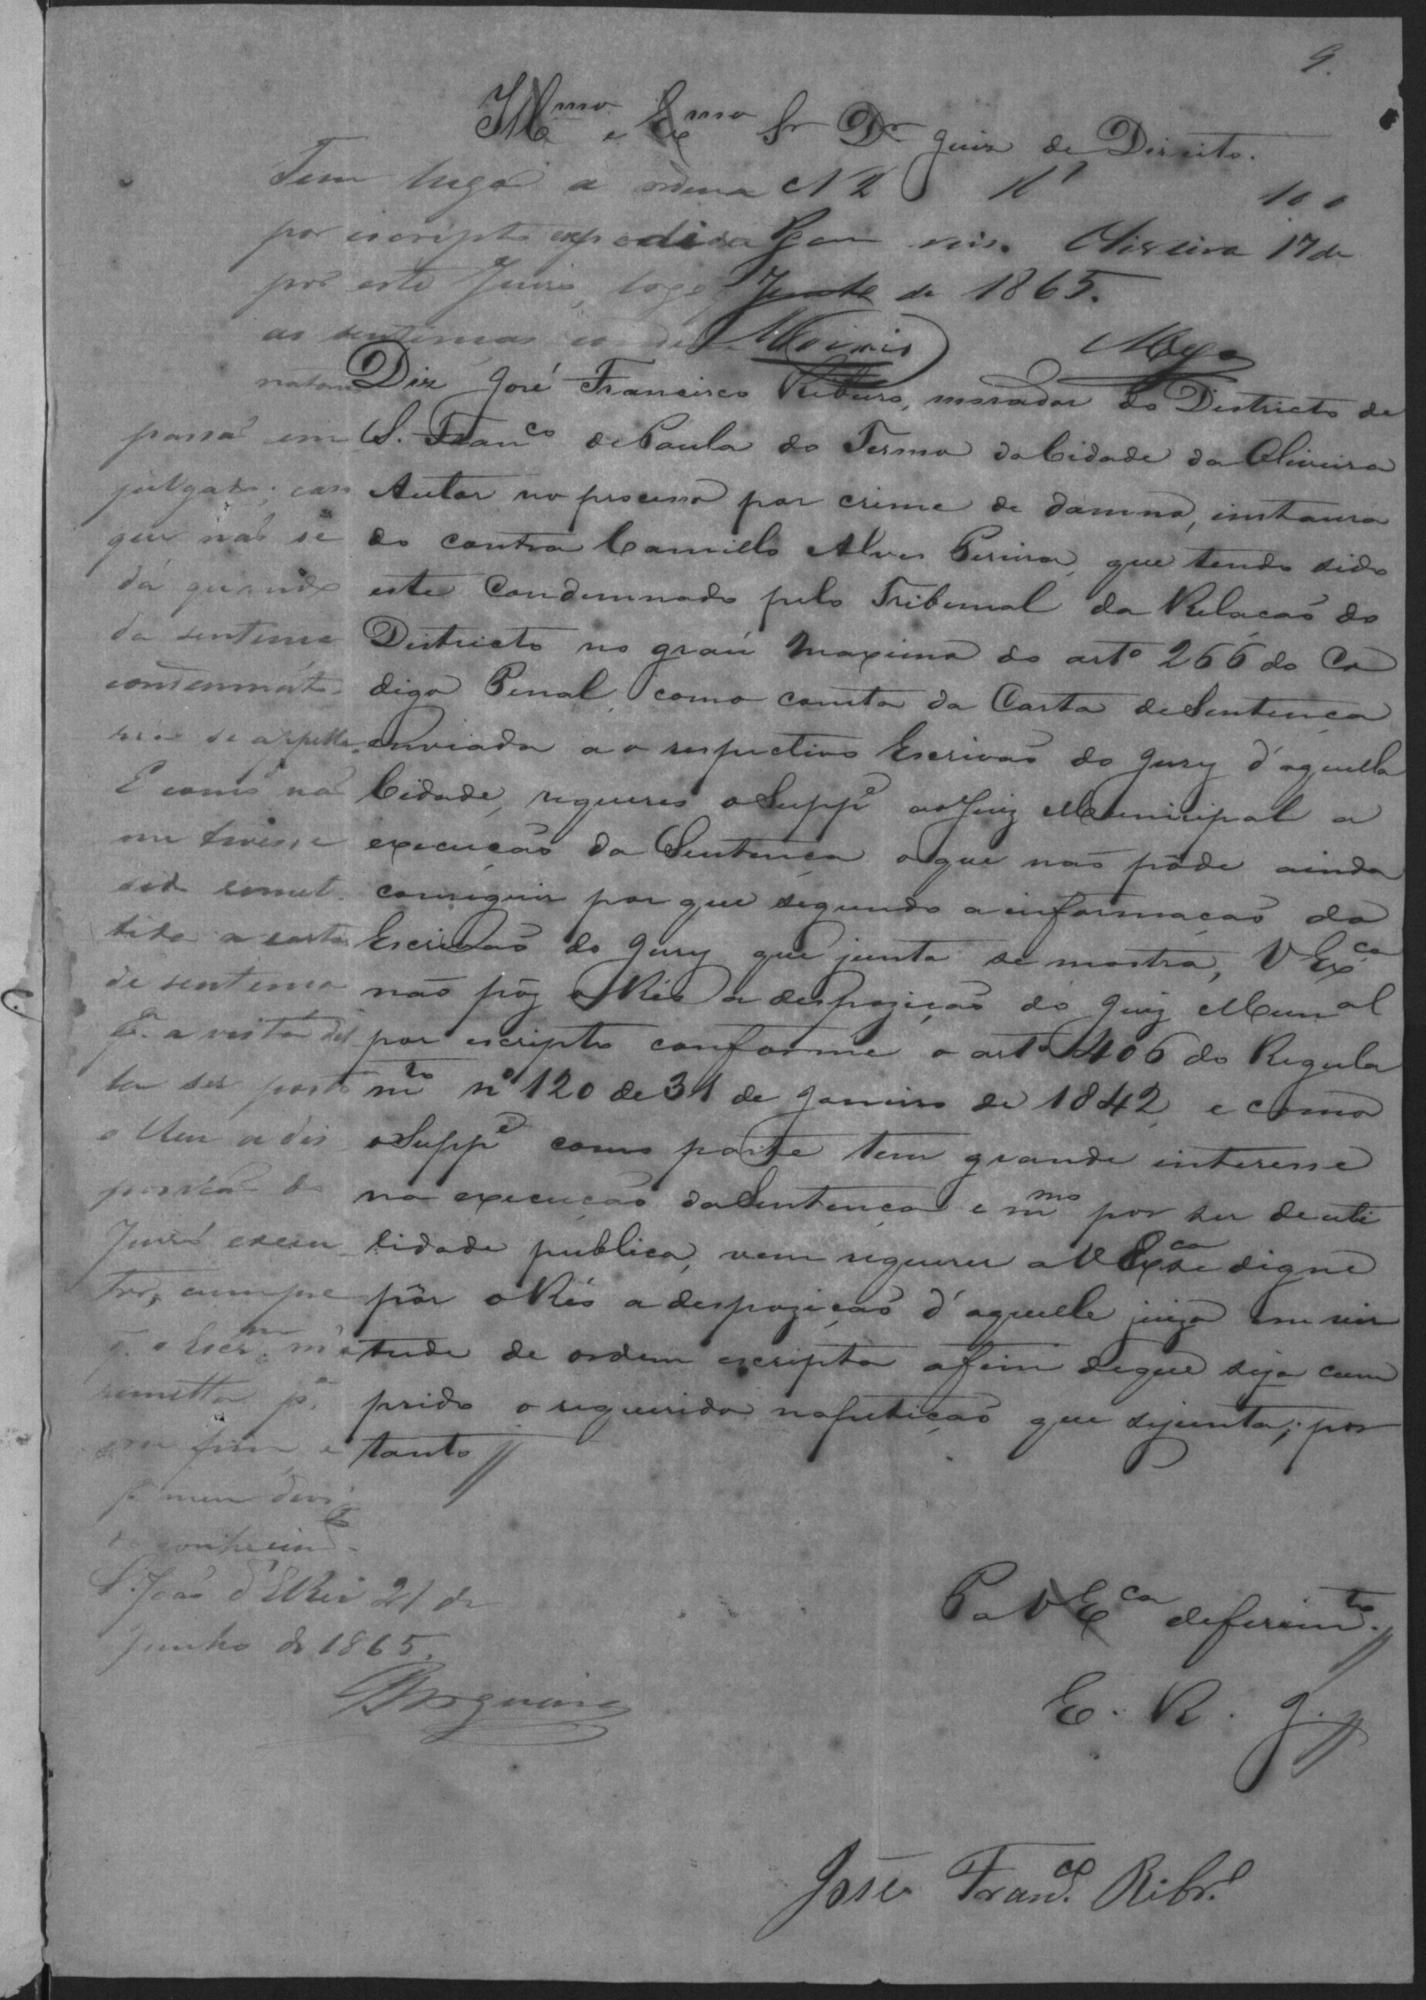 9.
Illmo e Exmo Sr Dr Juiz de Direito.
Tem lugar a ordem N 2 100
por escripto expedida Pg cem reis. Oliveira 17 de
por este Juizo, logo q Junho de 1865.
as sentenças
Diz José Francisco Ribeiro, morador do Districto de
S. Franco de Paula do Termo da Cidade da Oliveira
Autor no processo por crime de damno, instaura
do contra Camillo Alves Pereira, que tendo sido
este Condemnado pelo Tribunal da Relação do
Districto no gráu maximo do arto 266 do Co
digo Penal, como consta da Carta de Sentença
enviada ao respectivo Escrivão do Jury d'aquella
Cidade, requereo o Suppe ao Juiz Municipal a
execução da Sentença o que não pôde ainda
conseguir por que segundo a informação do
Escrivão do Jury que junta se mostra, V Exca
não pôz o Réo a despozição do Juiz Munal
por escripto conforme o arto 406 do Regula
mto no 120 de 31 de Janeiro de 1842, e como
o Suppe como parte tem grande interesse
na execução da Sentença e mmo por ser de uti
lidade publica, vem requerer a V Exca se digne
pôr o Réo a despozição d'aquelle juizo em vir
tude de ordem escripta afim de que seja cum
prido o requerido na petição que se junta; por
tanto //
P a V Exca deferimto. //
E. R. J. //
José Franco. Ribro.
passão em
julgado; caso
que não se
dá quando
da sentença
condemnato-
ria se appella.
E como não
me tivesse
sido remet-
tida a carta
de sentença
pa. a vista del
la ser posto
o Reu a dis
posição do
Juizo execu
tor, cumpre
q. o Escrm. m'a
remetta pa.
esse fim, e
pa meu devi
do conhecimto.
S. João d'El Rei 21 de
Junho de 1865.